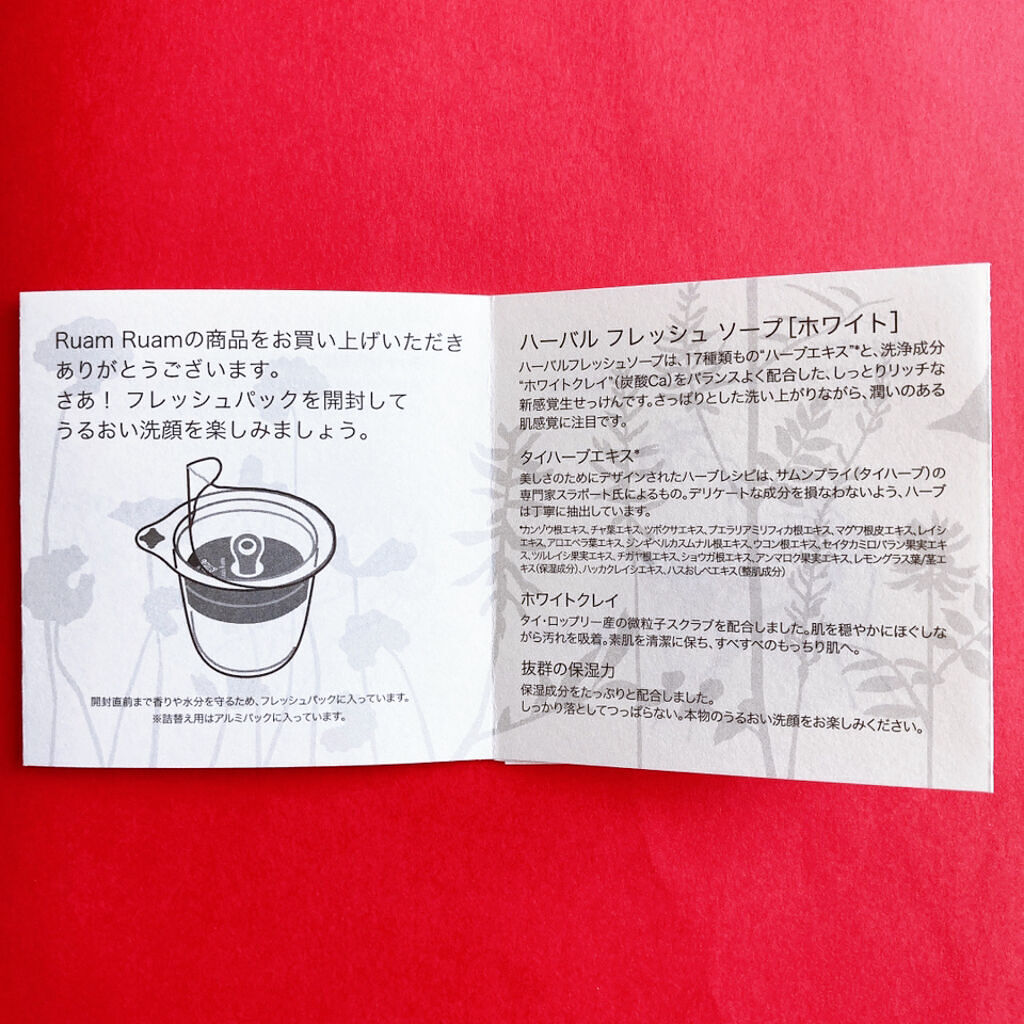 Ruam Ruamの商品をお買い上げいただき
ありがとうございます。
さあ！ フレッシュパックを開封して
うるおい洗顔を楽しみましょう。
開封直前まで香りや水分を守るため、フレッシュパックに入っています。
※詰替え用はアルミパックに入っています。
ハーバル フレッシュ ソープ［ホワイト］
ハーバルフレッシュソープは、17種類もの“ハーブエキス”*と、洗浄成分
“ホワイトクレイ”（炭酸Ca）をバランスよく配合した、しっとりリッチな
新感覚生せっけんです。さっぱりとした洗い上がりながら、潤いのある
肌感覚に注目です。
タイハーブエキス*
美しさのためにデザインされたハーブレシピは、サムンプライ（タイハーブ）の
専門家スラポート氏によるもの。デリケートな成分を損なわないよう、ハーブ
は丁寧に抽出しています。
*カンゾウ根エキス、チャ葉エキス、ツボクサエキス、プエラリアミリフィカ根エキス、マグワ根皮エキス、レイシ
エキス、アロエベラ葉エキス、ジンギベルカスムナル根エキス、ウコン根エキス、セイタカミロバラン果実エキ
ス、ツルレイシ果実エキス、チガヤ根エキス、ショウガ根エキス、アンマロク果実エキス、レモングラス葉/茎エ
キス（保湿成分）、ハッカクレイシエキス、ハスおしべエキス（整肌成分）
ホワイトクレイ
タイ・ロッブリー産の微粒子スクラブを配合しました。肌を穏やかにほぐしな
がら汚れを吸着。素肌を清潔に保ち、すべすべのもっちり肌へ。
抜群の保湿力
保湿成分をたっぷりと配合しました。
しっかり落としてつっぱらない。本物のうるおい洗顔をお楽しみください。